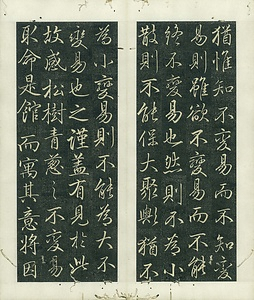 猶惟知不變易而不知變
易則雖欲不變易而不能
終不變易也然則不為小
散則不能保大聚與猶不
為小變易則不能為大不
變易也之謹蓋有見於此
故感松樹青蔥之不變易
取命是館而寓其意將因